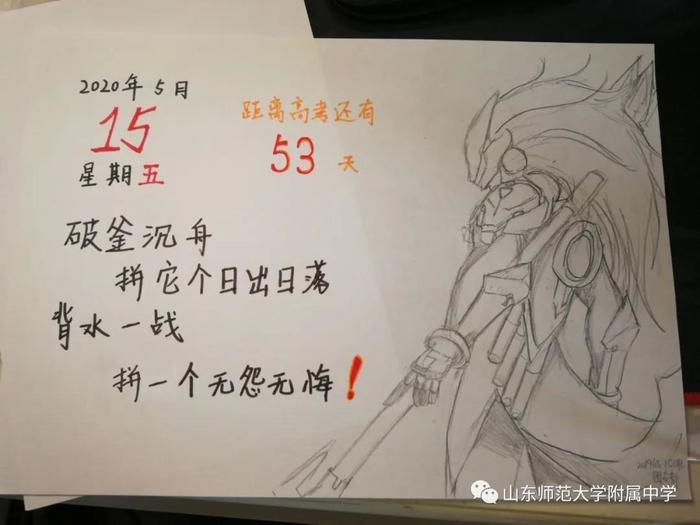 2020年5月
15
星期五
距离高考还有
53天
破釜沉舟
拼它个日出日落
背水一战
拼一个无怨无悔！
山东师范大学附属中学